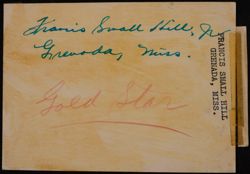 Francis Small Hill, Jr
Grenada, Miss.
Gold Star
FRANCIS SMALL HILL
GRENADA, MISS.